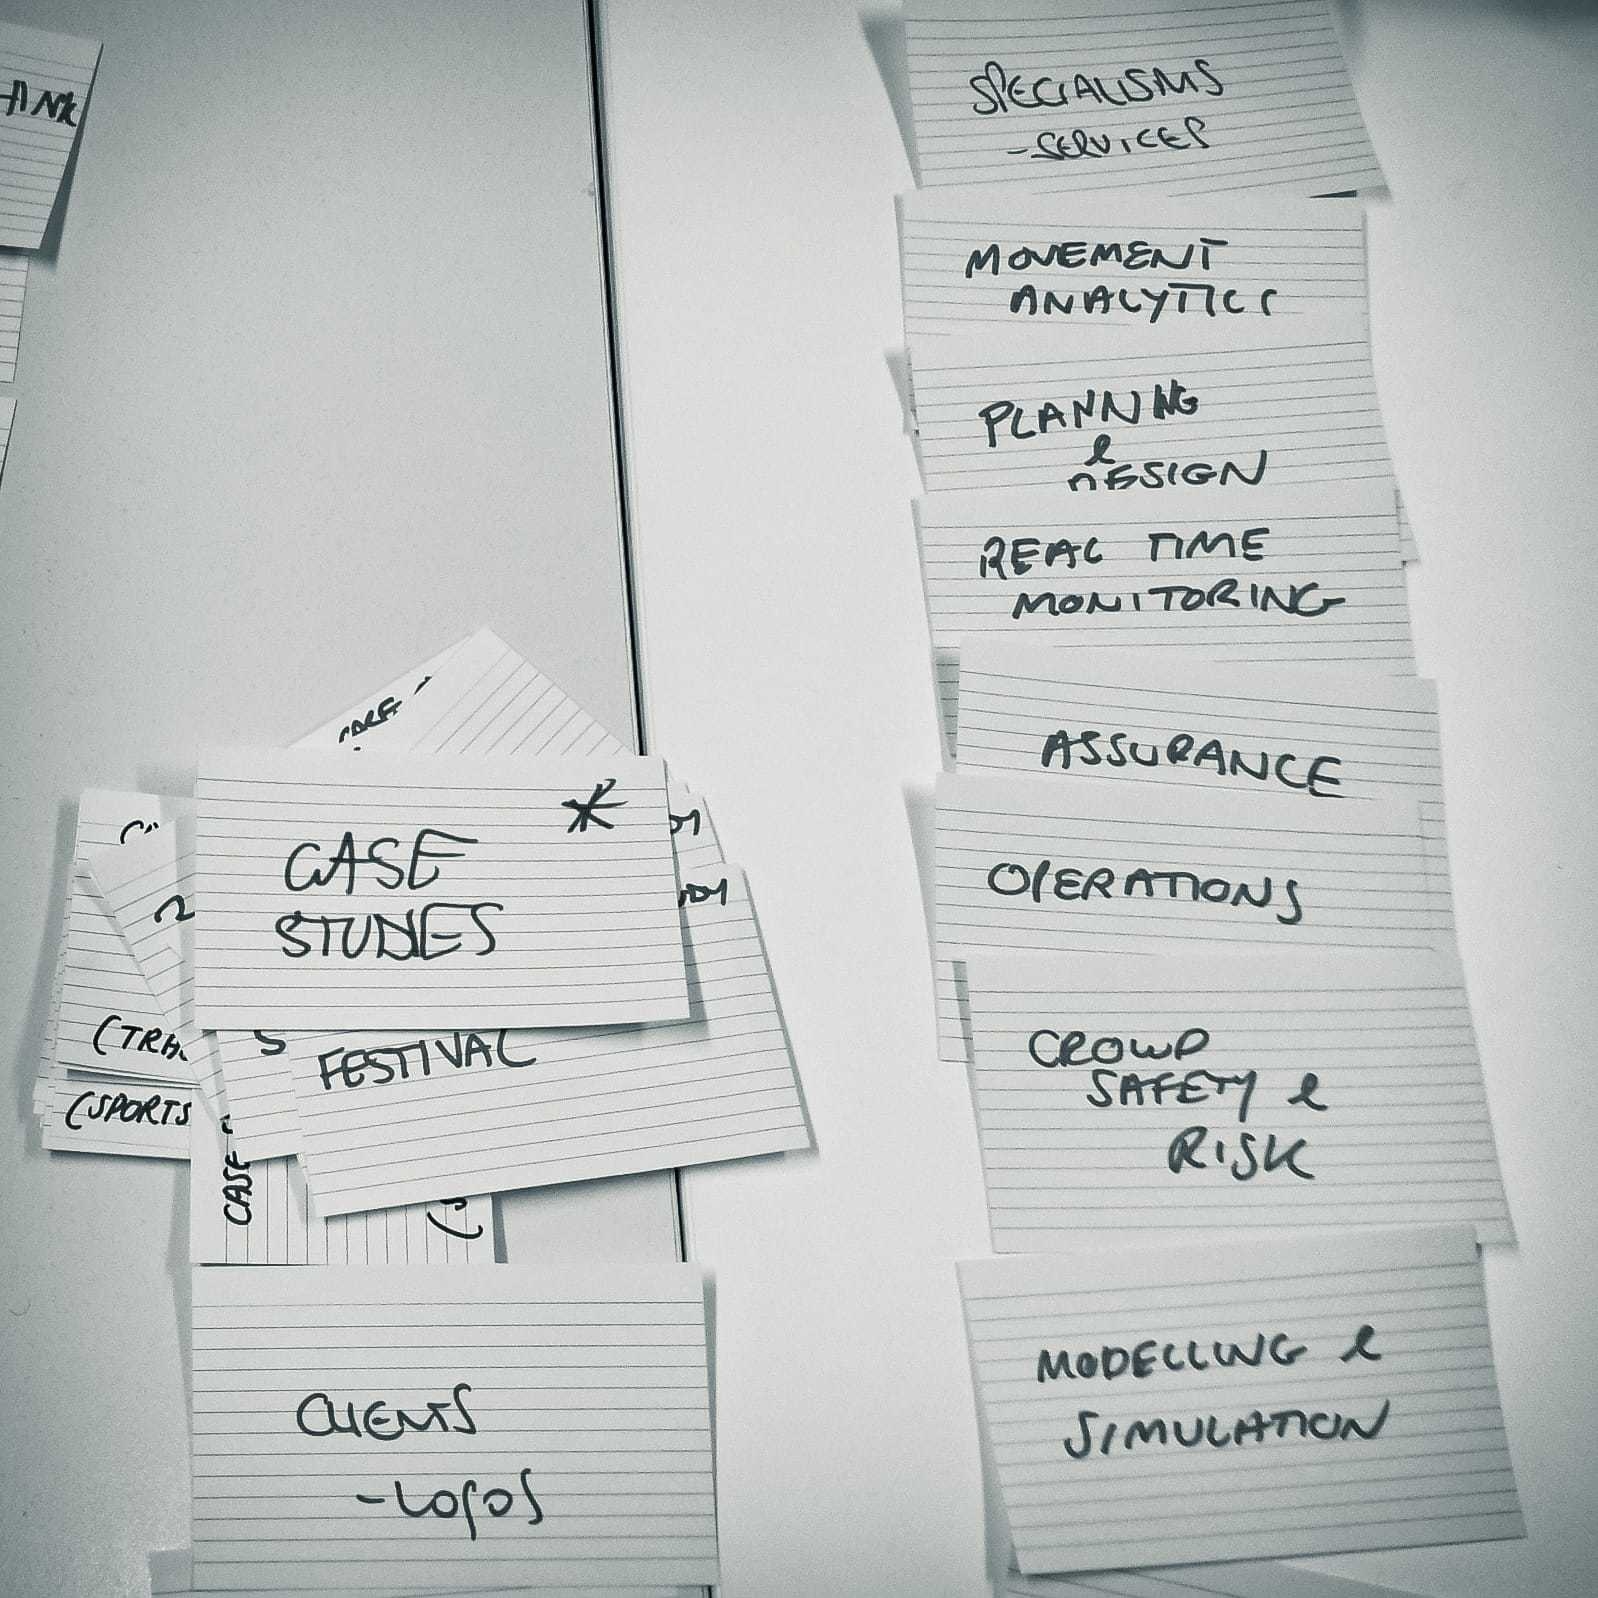 SPECIALISMS
-SERVICES
MOVEMENT
ANALYTICS
PLANNING
&
DESIGN
REAL TIME
MONITORING
ASSURANCE
OPERATIONS
CROWD
SAFETY &
RISK
MODELLING &
SIMULATION
*
CASE
STUDIES
FESTIVAL
(SPORTS
CASE
CLIENTS
-LOGOS